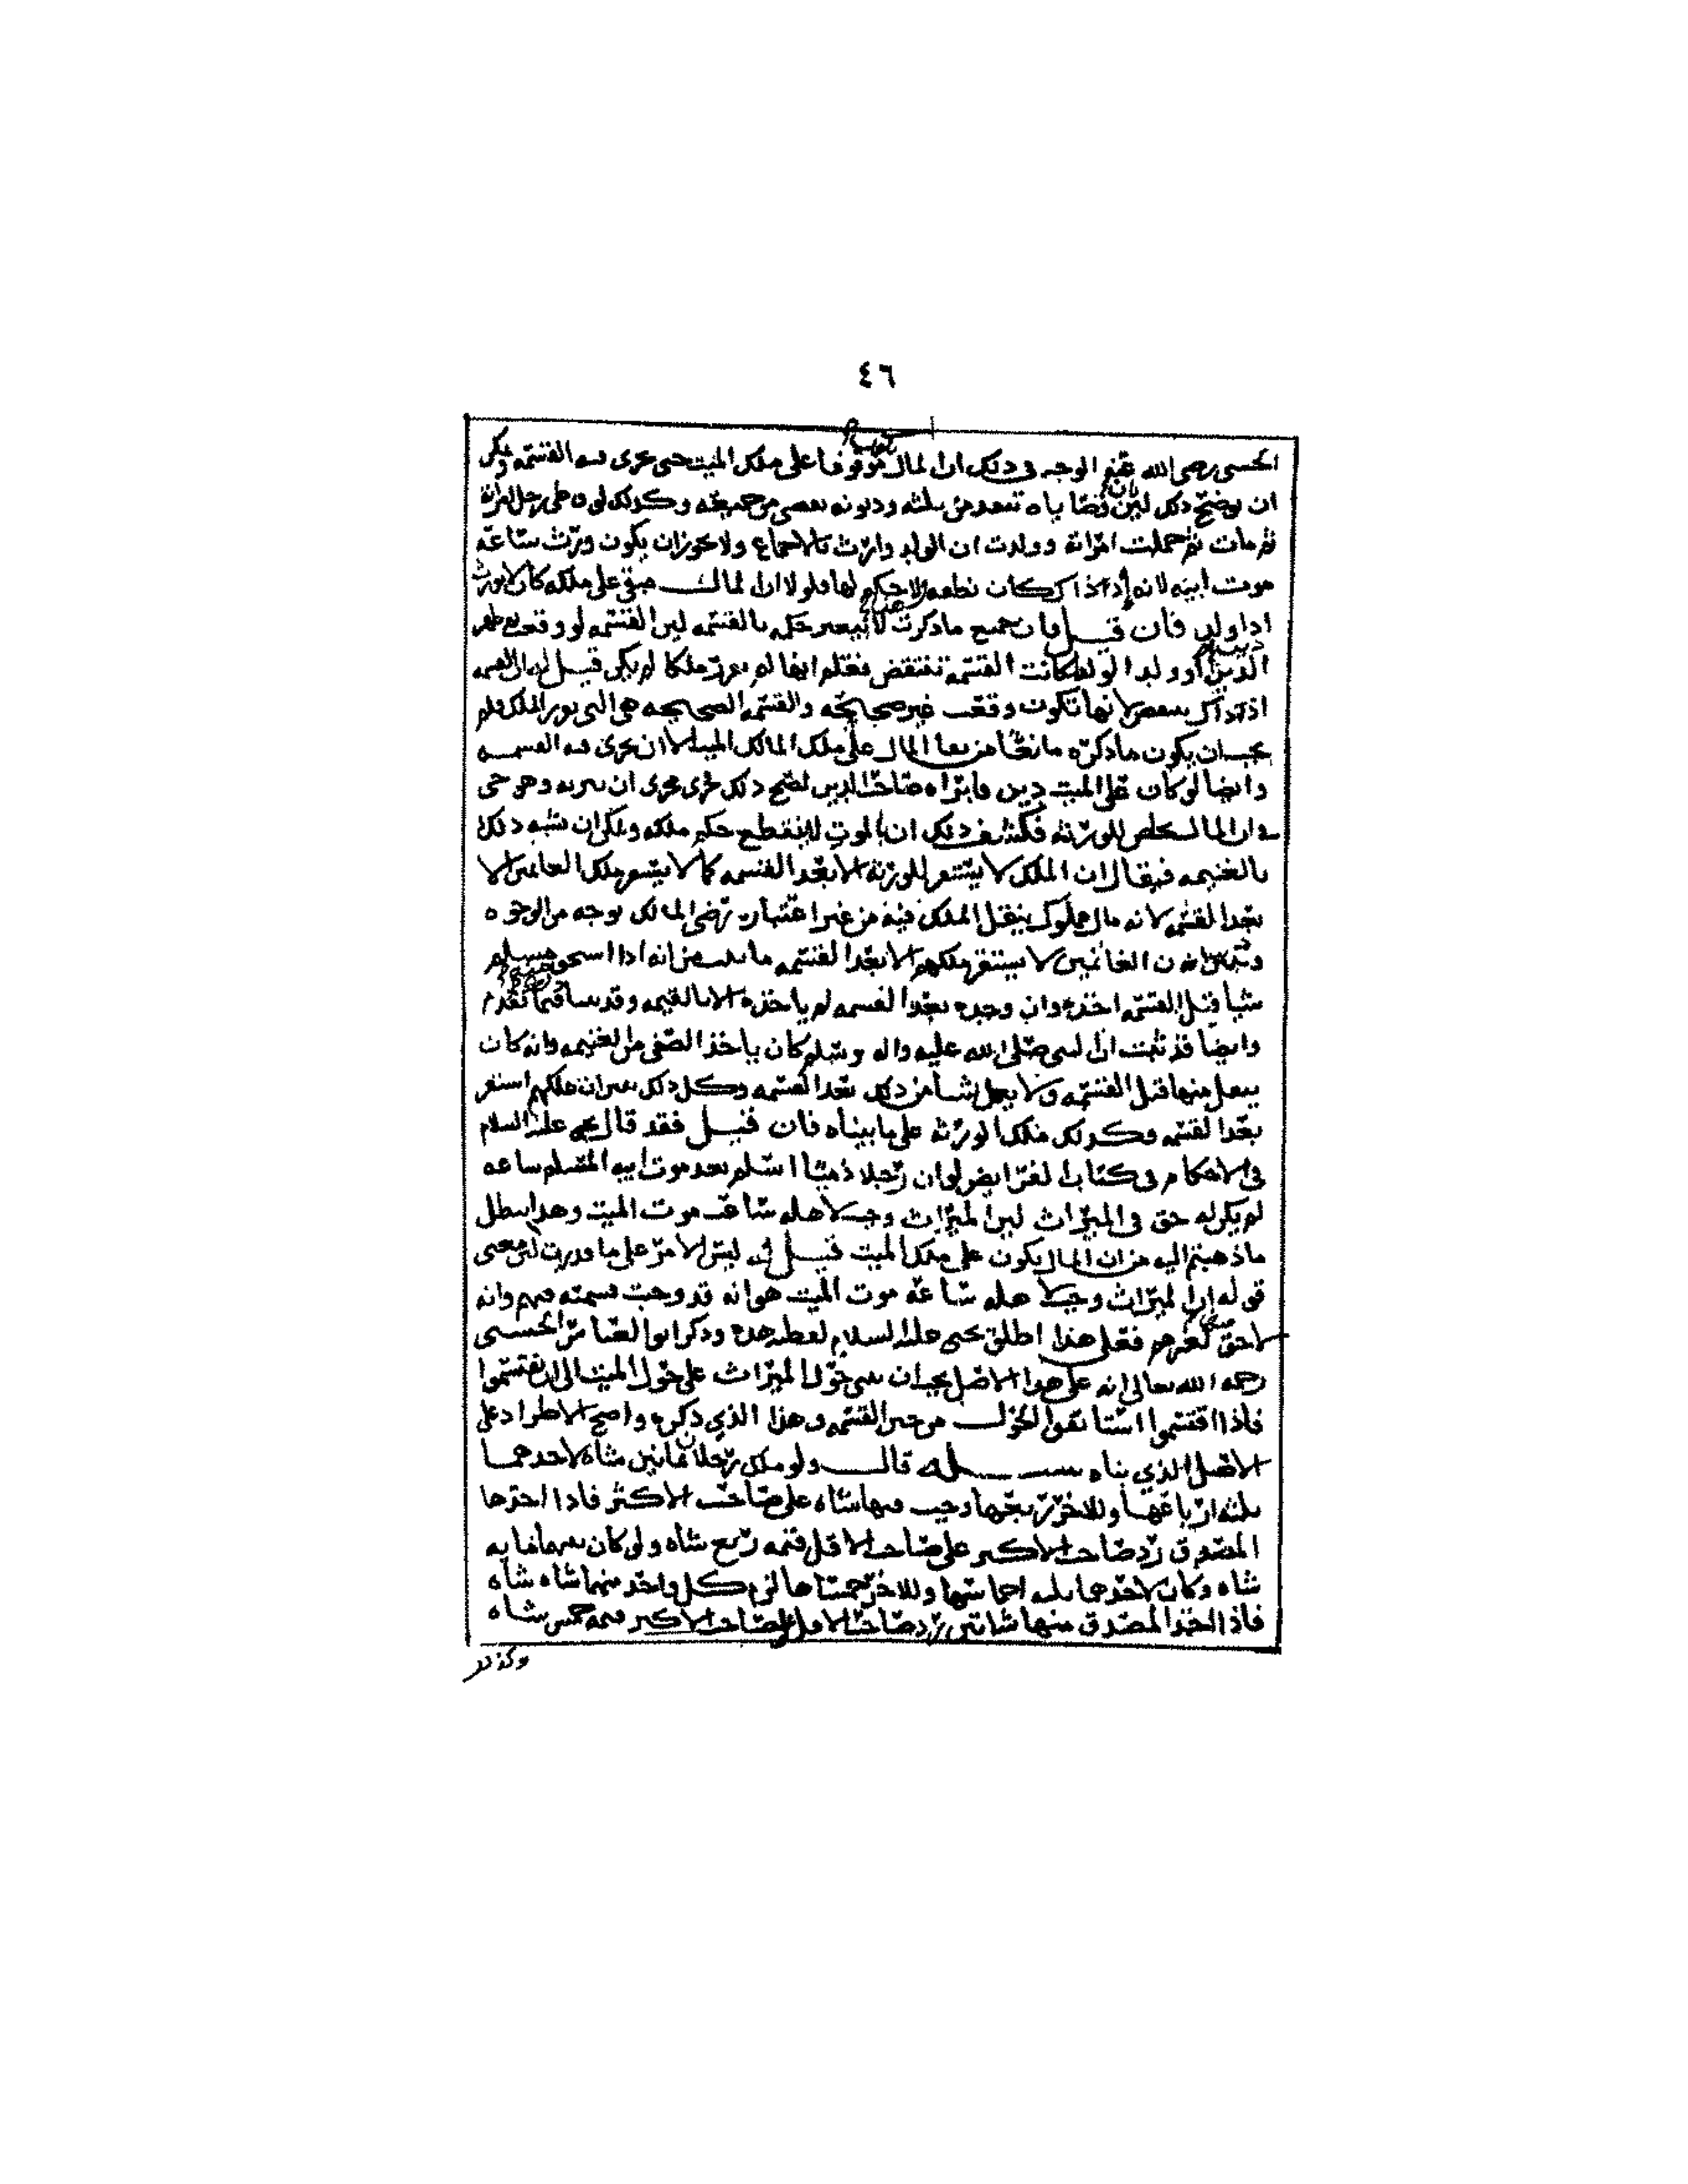 ٤٦
الحسني رضي الله عنهم الوجه في ذلك ان المال موقوفا على ملك الميت حتى يجرى فيه القسمة ويمكن
ان يوضح ذلك لان وصاياه تنفذ من ثلثه وديونه تقضى من جميعه وكذلك لو
ثم مات ثم حملت امراته وولدت ان الولد وارث بالاجماع ولا يجوز ان يكون ورث ساعة
موت ابيه لانه اذ ذاك كان نطفة لا حكم لها فلولا ان المال مبقى على ملكه كان لا يورث
اذا ولد فان قيل فان جميع ما ذكرت بالقسمة لان القسمة لو وقعت ثم ظهر
الدين او ولد الولد لكانت القسمة تنتقض فعلم انها لم ملكا لم يكن قيل له ان القسمة
اذ ذاك لانها تكون وقعت غير صحيحة والقسمة الصحيحة هي التي الملك فلم
يجب ان يكون ما ذكره مانعا من بقا المال على ملك المالك الميت الا ان يجرى فيه القسمة
وايضا لو كان على الميت دين فابراه صاحب الدين لصح ذلك وجرى مجرى ان يبريه وهو حي
وان المال يخلص للورثة فكشف ذلك ان بالموت لا ينقطع حكم ملكه ويمكن ان نشبه ذلك
بالغنيمة فيقال ان الملك لا يستقر للورثة الا بعد القسمة كما لا يستقر ملك الغانمين الا
بعد القسمة لانه مال مملوك ينقل الملك فيه من غير اعتبار رضى المالك بوجه من الوجوه
ان الغانمين لا يستقر ملكهم الا بعد القسمة ما من انه اذا
شيا قبل القسمة اخذه وان وجده بعد القسمة لم ياخذه الا بالقيمة وقد بينا فيما تقدم
وايضا قد ثبت ان النبي صلى الله عليه واله وسلم كان ياخذ الصفي من الغنيمة وانه كان
ينفل منها قبل القسمة ولا ينفل شيا من ذلك بعد القسمة وكل ذلك ان ملكهم استقر
بعد القسمة وكذلك ملك الورثة على ما بيناه فان قيل فقد قال يحيى عليه السلام
في الاحكام في كتاب الفرايض لو ان رجلا ذميا اسلم بعد موت ابيه المسلم ساعة
لم يكن له حق في الميراث لان الميراث وجب لاهله ساعة موت الميت وهذا يبطل
ما ذهبتم اليه من ان المال يكون على ملك الميت قيل له ليس الامر على ما قدرت لان معنى
قوله ان الميراث وجب لاهله ساعة موت الميت هو انه قد وجبت قسمته فيهم وانه
لا حق لغيرهم فعلى هذا اطلق يحيى عليه السلام لفظه هذه وذكر ابو العباس الحسني
رحمه الله تعالى انه على هذا الاصل يجب ان يبنى حول الميراث على حول الميت الى ان يقتسموا
فاذا اقتسموا استانفوا الحول من حين القسمة وهذا الذي ذكره واضح الاطراد على
الاصل الذي بناه مسئلة قال ولو ملك رجلان ثمانين شاة لاحدهما
ثلثة ارباعها وللاخر ربعها وجب فيها شاة على صاحب الاكثر فاذا اخذها
المصدق رد صاحب الاكثر على صاحب الاقل قيمة ربع شاة ولو كان بينهما مايه
شاه وكان لاحدهما ثلثة اخماسها وللاخر خمساها لزم كل واحد منهما شاه شاه
فاذا اخذ المصدق منها شاتين رد صاحب الاقل على صاحب الاكثر قيمة خمس شاه
وكذلك